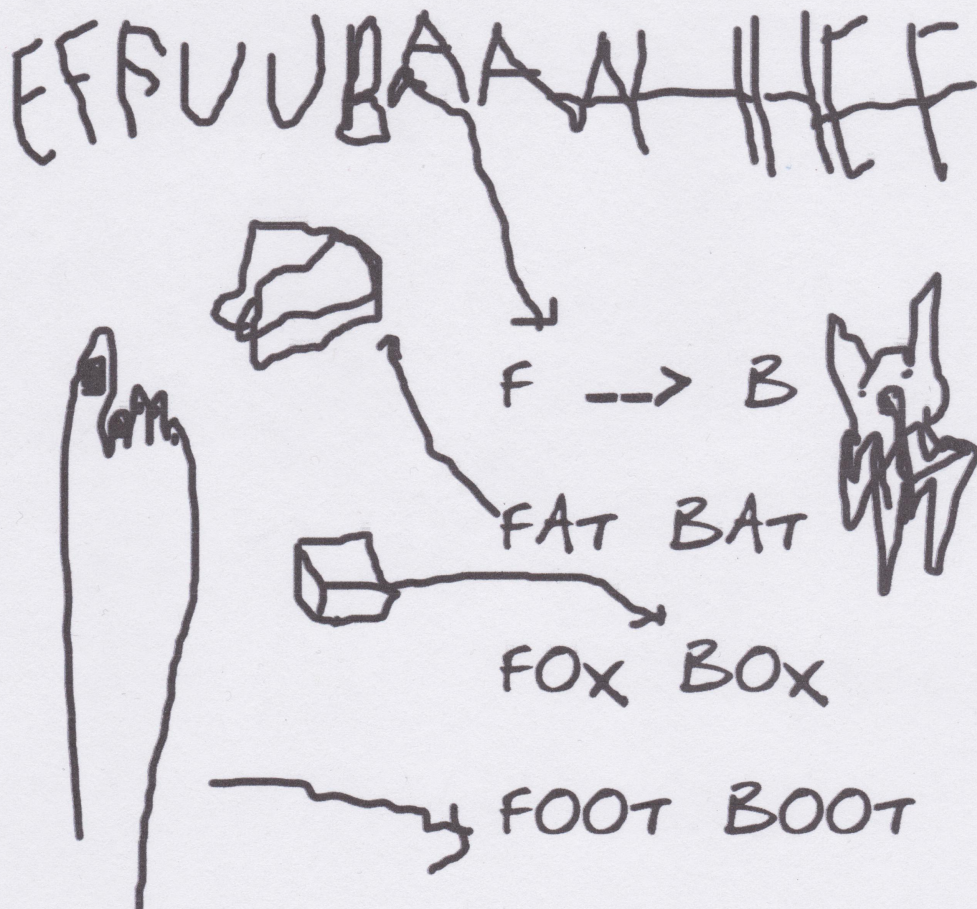 EFFUUBAAAHHEF
F --> B
FAT BAT
FOX BOX
FOOT BOOT